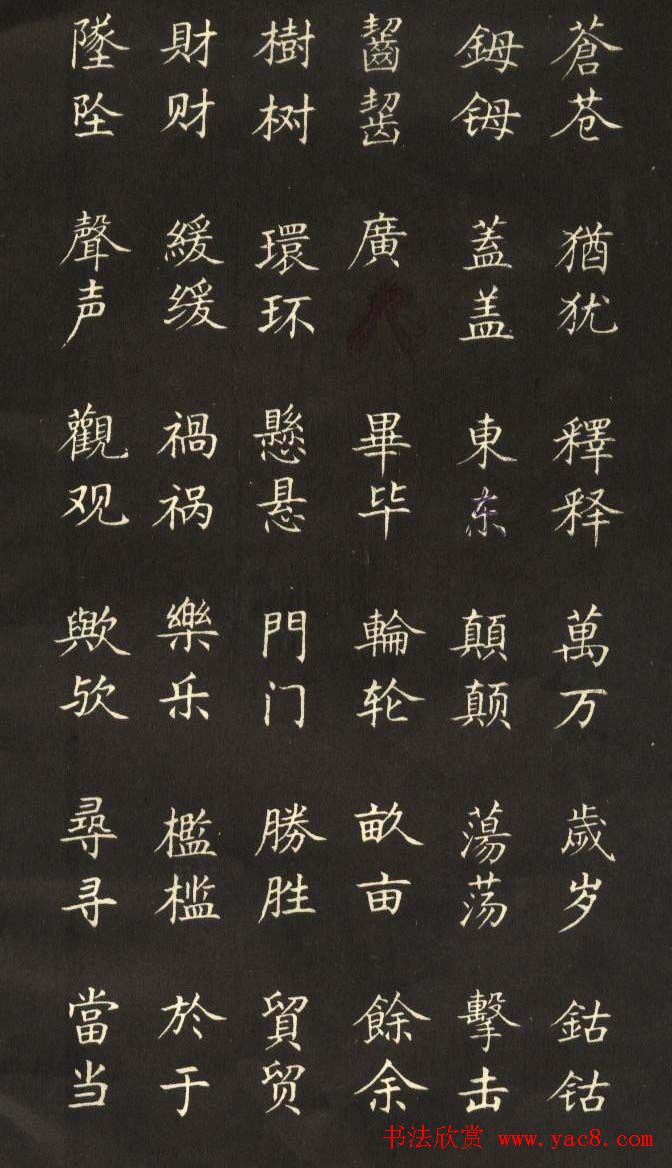 蒼苍 猶犹 釋释 萬万 歲岁 鈷钴
鉧𬭁 蓋盖 東东 顛颠 蕩荡 擊击
齧𫜩 廣 畢毕 輪轮 畝亩 餘余
樹树 環环 懸悬 門门 勝胜 貿贸
財财 緩缓 禍祸 樂乐 檻槛 於于
墜坠 聲声 觀观 歟欤 尋寻 當当
书法欣赏 www.yac8.com